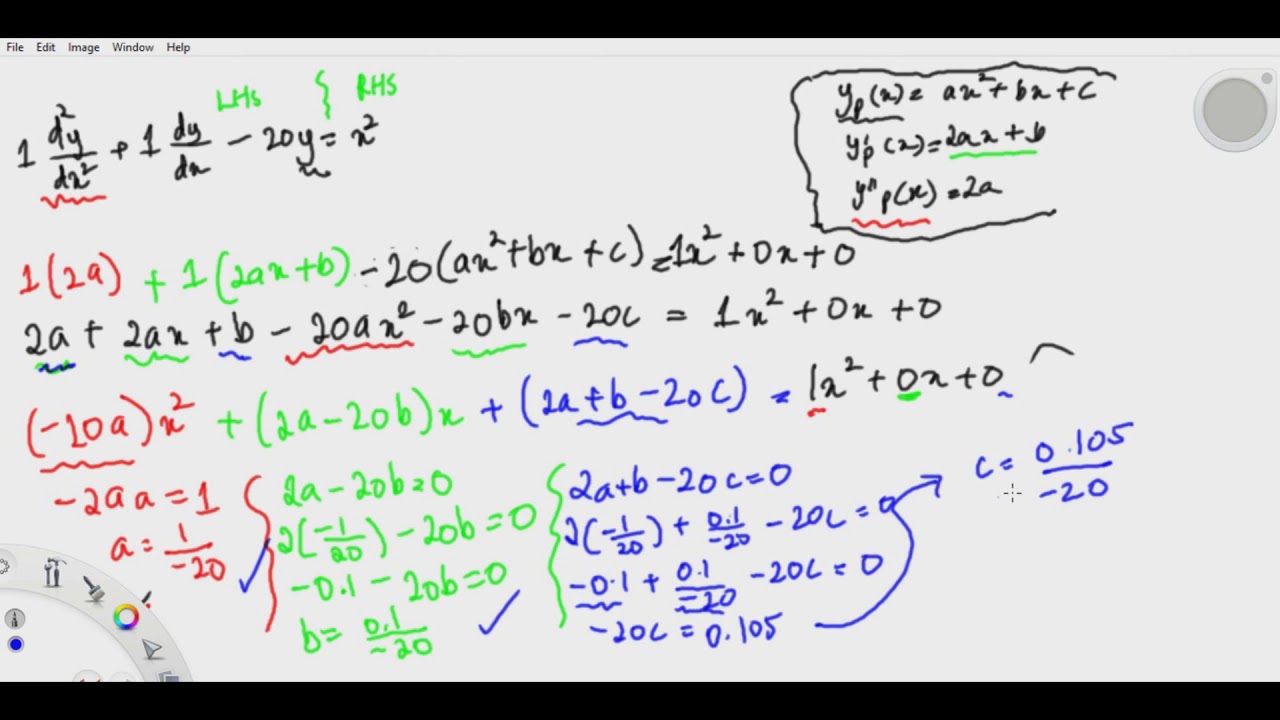 File Edit Image Window Help
LHS } RHS
1 d²y/dx² + 1 dy/dx − 20y = x²
yp(x) = ax² + bx + c
y'p(x) = 2ax + b
y"p(x) = 2a
1(2a) + 1(2ax+b) − 20(ax²+bx+c) = 1x² + 0x + 0
2a + 2ax + b − 20ax² − 20bx − 20c = 1x² + 0x + 0
(−20a)x² + (2a−20b)x + (2a+b−20c) = 1x² + 0x + 0
−20a = 1
a = 1/−20
2a − 20b = 0
2(−1/20) − 20b = 0
−0.1 − 20b = 0
b = 0.1/−20
2a+b − 20c = 0
2(−1/20) + 0.1/−20 − 20c = 0
−0.1 + 0.1/−20 − 20c = 0
−20c = 0.105
c = 0.105/−20